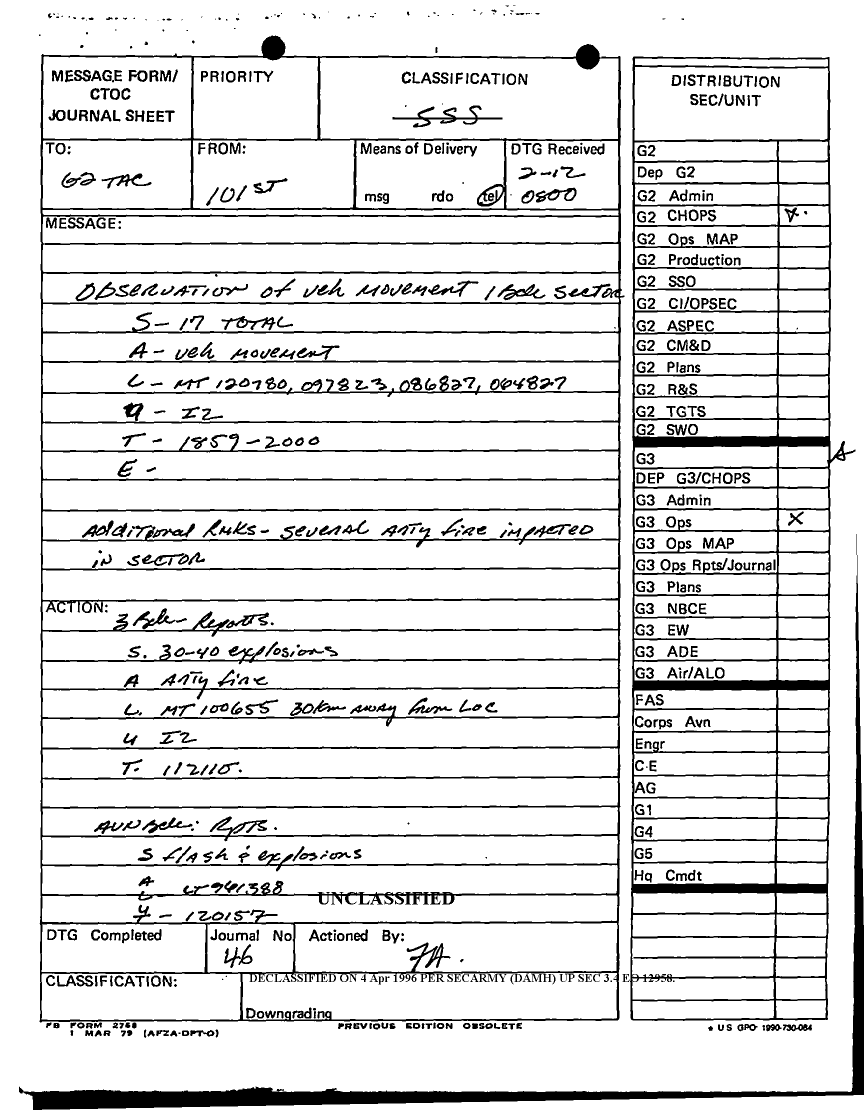 MESSAGE FORM/
CTOC
JOURNAL SHEET
PRIORITY
CLASSIFICATION
SSS
TO:
G2 TAC
FROM:
101ST
Means of Delivery
msg rdo tel
DTG Received
2-12
0800
MESSAGE:
OBSERVATION of veh MOVEMENT 1 Bde Sector
S - 17 TOTAL
A - veh MOVEMENT
L - MT 120780, 097823, 086827, 064827
U - IZ
T - 1859-2000
E -
Additional RMKS - several ARTY fire impacted
in sector
ACTION:
3 Bde - Reports.
S. 30-40 explosions
A ARTY fire
L. MT 100655 30km away from LOC
U IZ
T. 112110.
AVN Bde: RPTS.
S flash & explosions
A
L LT 941388
UNCLASSIFIED
T - 120157
DTG Completed
Journal No
46
Actioned By:
CLASSIFICATION:
DECLASSIFIED ON 4 Apr 1996 PER SECARMY (DAMH) UP SEC 3.4 EO 12958.
Downgrading
FB FORM 2768
1 MAR 79 (AFZA-DPT-O)
PREVIOUS EDITION OBSOLETE
DISTRIBUTION
SEC/UNIT
G2
Dep G2
G2 Admin
G2 CHOPS X
G2 Ops MAP
G2 Production
G2 SSO
G2 CI/OPSEC
G2 ASPEC
G2 CM&D
G2 Plans
G2 R&S
G2 TGTS
G2 SWO
G3
DEP G3/CHOPS
G3 Admin
G3 Ops X
G3 Ops MAP
G3 Ops Rpts/Journal
G3 Plans
G3 NBCE
G3 EW
G3 ADE
G3 Air/ALO
FAS
Corps Avn
Engr
C-E
AG
G1
G4
G5
Hq Cmdt
* US GPO: 1990-730-084